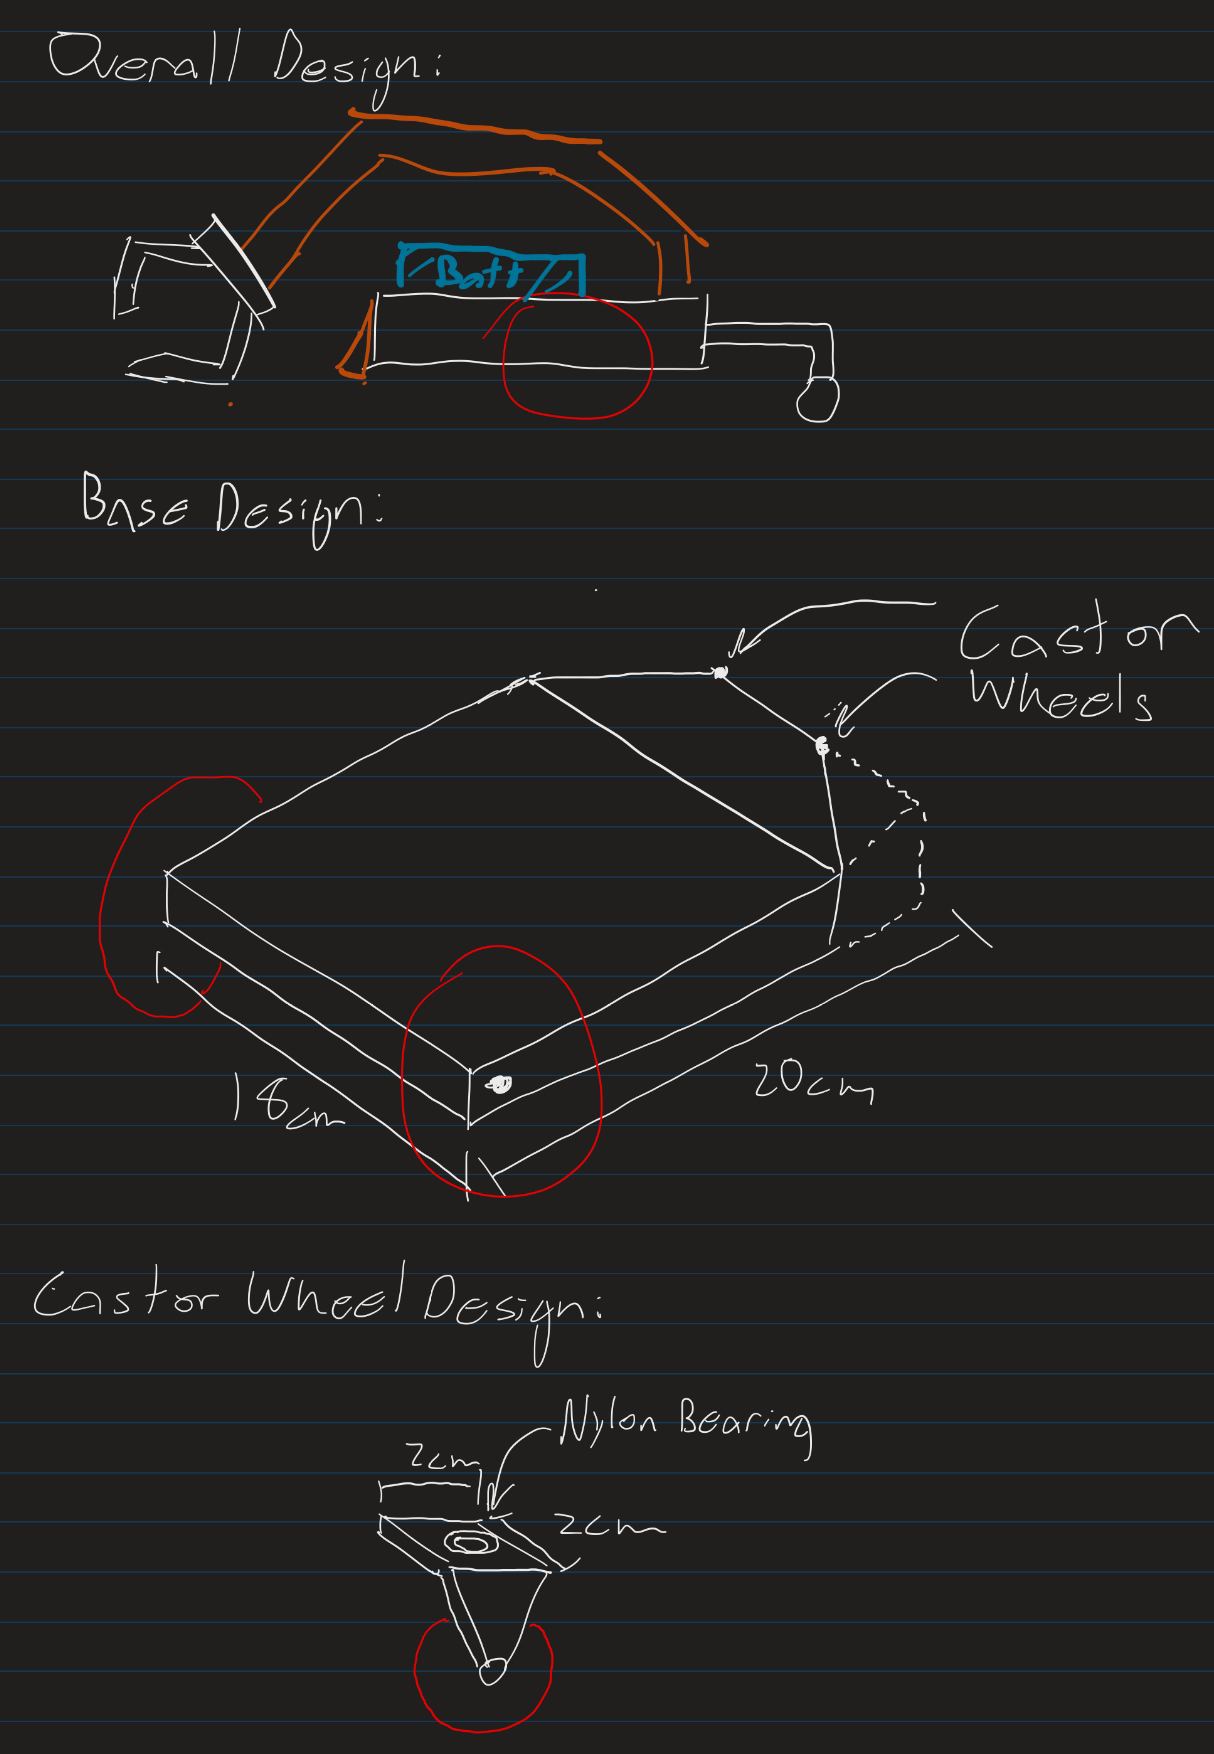 Overall Design:
Batt
Base Design:
Castor
Wheels
18cm
20cm
Castor Wheel Design:
Nylon Bearing
2cm
2cm